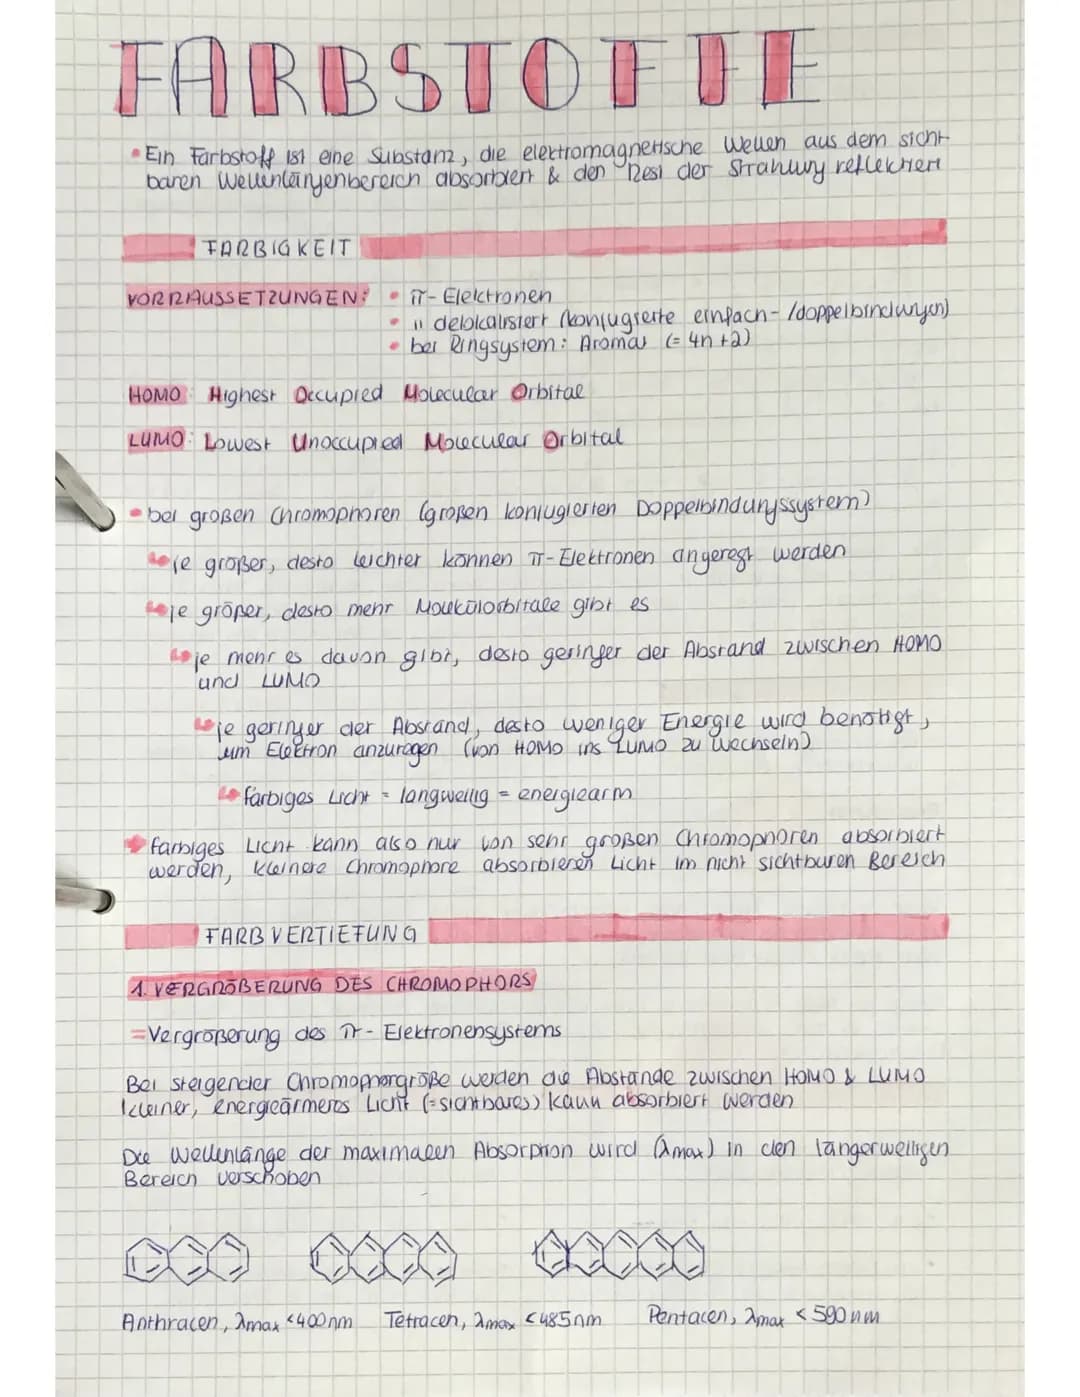 FARBSTOFFE
• Ein Farbstoff ist eine Substanz, die elektromagnetische Wellen aus dem sicht-
baren Wellenlängenbereich absorbiert & den Rest der Strahlung reflektiert
FARBIGKEIT
VORRAUSSETZUNGEN: • π-Elektronen
• " delokalisiert (konjugierte einfach-/doppelbindungen)
• bei Ringsystem: Aromat (= 4n+2)
HOMO: Highest Occupied Molecular Orbital
LUMO: Lowest Unoccupied Molecular Orbital
• bei großen Chromophoren (großen konjugierten Doppelbindungssystem)
↳ je größer, desto leichter können π-Elektronen angeregt werden
↳ je größer, desto mehr Molekülorbitale gibt es
↳ je mehr es davon gibt, desto geringer der Abstand zwischen HOMO
und LUMO
↳ je geringer der Abstand, desto weniger Energie wird benötigt,
um Elektron anzuregen (von HOMO ins LUMO zu wechseln)
↳ farbiges Licht = langwellig = energiearm
→ farbiges Licht kann also nur von sehr großen Chromophoren absorbiert
werden, kleinere Chromophore absorbieren Licht im nicht sichtbaren Bereich
FARBVERTIEFUNG
1. VERGRÖßERUNG DES CHROMOPHORS
= Vergrößerung des π-Elektronensystems
Bei steigender Chromophorgröße werden die Abstände zwischen HOMO & LUMO
kleiner, energieärmeres Licht (=sichtbares) kann absorbiert werden
Die Wellenlänge der maximalen Absorption wird (λmax) in den längerwelligen
Bereich verschoben
Anthracen, λmax <400nm Tetracen, λmax <485nm Pentacen, λmax <590nm